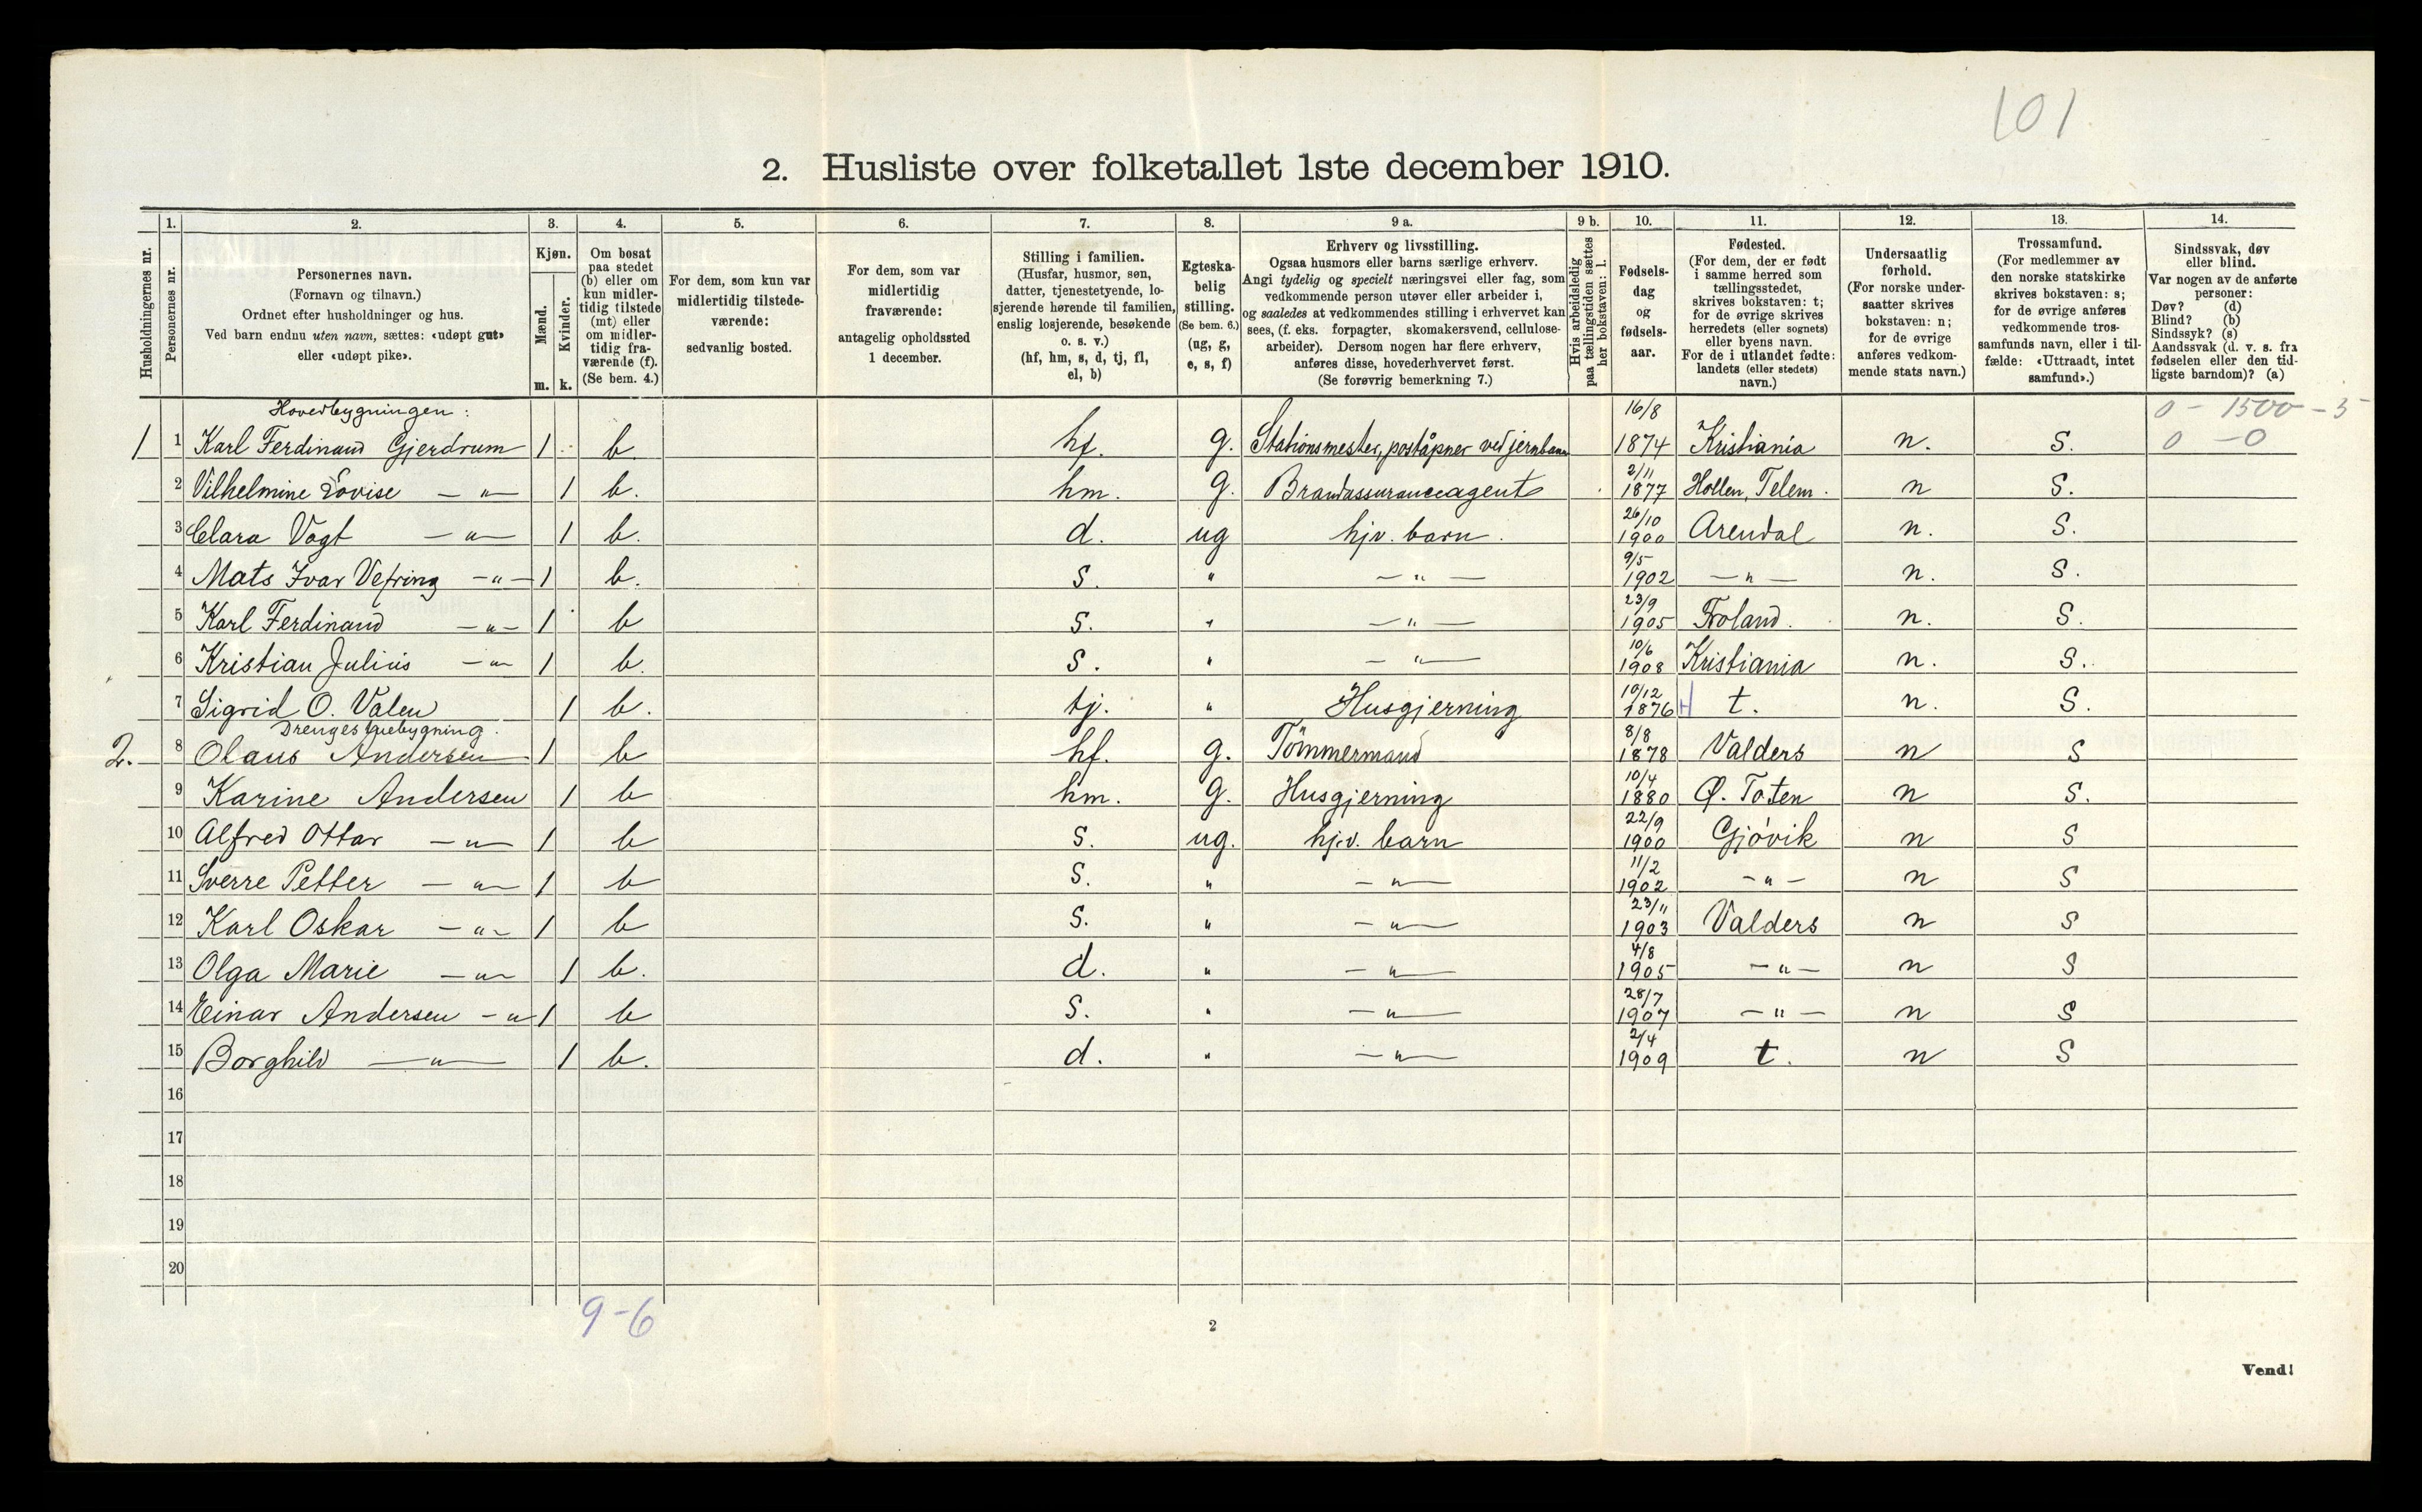 101
2. Husliste over folketallet 1ste december 1910.
Husholdningernes nr.
1.
Personernes nr.
2.
Personernes navn.
(Fornavn og tilnavn.)
Ordnet efter husholdninger og hus.
Ved barn endnu uten navn, sættes: «udøpt gut»
eller «udøpt pike».
3.
Kjøn.
Mænd.
m.
Kvinder.
k.
4.
Om bosat
paa stedet
(b) eller om
kun midler-
tidig tilstede
(mt) eller
om midler-
tidig fra-
værende (f).
(Se bem. 4.)
5.
For dem, som kun var
midlertidig tilstede-
værende:
sedvanlig bosted.
6.
For dem, som var
midlertidig
fraværende:
antagelig opholdssted
1 december.
7.
Stilling i familien.
(Husfar, husmor, søn,
datter, tjenestetyende, lo-
sjerende hørende til familien,
enslig losjerende, besøkende
o. s. v.)
(hf, hm, s, d, tj, fl,
el, b)
8.
Egteska-
belig
stilling.
(Se bem. 6.)
(ug, g,
e, s, f)
9 a.
Erhverv og livsstilling.
Ogsaa husmors eller barns særlige erhverv.
Angi tydelig og specielt næringsvei eller fag, som
vedkommende person utøver eller arbeider i,
og saaledes at vedkommendes stilling i erhvervet kan
sees, (f. eks. forpagter, skomakersvend, cellulose-
arbeider). Dersom nogen har flere erhverv,
anføres disse, hovederhvervet først.
(Se forøvrig bemerkning 7.)
9 b.
Hvis arbeidsledig
paa tællingstiden sættes
her bokstaven: l.
10.
Fødsels-
dag
og
fødsels-
aar.
11.
Fødested.
(For dem, der er født
i samme herred som
tællingsstedet,
skrives bokstaven: t;
for de øvrige skrives
herredets (eller sognets)
eller byens navn.
For de i utlandet fødte:
landets (eller stedets)
navn.)
12.
Undersaatlig
forhold.
(For norske under-
saatter skrives
bokstaven: n;
for de øvrige
anføres vedkom-
mende stats navn.)
13.
Trossamfund.
(For medlemmer av
den norske statskirke
skrives bokstaven: s;
for de øvrige anføres
vedkommende tros-
samfunds navn, eller i til-
fælde: «Uttraadt, intet
samfund».)
14.
Sindssvak, døv
eller blind.
Var nogen av de anførte
personer:
Døv? (d)
Blind? (b)
Sindssyk? (s)
Aandssvak (d. v. s. fra
fødselen eller den tid-
ligste barndom)? (a)
Hovedbygningen: 0 - 1500 - 5
1 1 Karl Ferdinand Gjerdrum 1 b. hf. g. Stationsmester, poståpner ved jernbane 16/8 1874 Kristiania n. S. 0 - 0
2 Vilhelmine Lovise —"— 1 b. hm. g. Brandassuranceagent 2/11 1877 Hollen, Telem. n S.
3 Clara Vogt —"— 1 b. d. ug hjv. barn. 26/10 1900 Arendal n. S.
4 Mats Ivar Vefring —"— 1 b. s. " —"— 9/5 1902 —"— n. S.
5 Karl Ferdinand —"— 1 b s. " —"— 23/9 1905 Froland. n. S.
6 Kristian Julius —"— 1 b. s. " —"— 10/6 1908 Kristiania n. S.
7 Sigrid O. Valen 1 b. tj. " Husgjerning 10/12 1876 t. n. S.
Drengestuebygning.
2. 8 Olaus Andersen 1 b hf. g. Tömmermand 8/8 1878 Valders n S
9 Karine Andersen 1 b hm. g. Husgjerning 10/4 1880 Ø. Toten n S.
10 Alfred Ottar —"— 1 b s. ug. hjv. barn 22/9 1900 Gjövik n S
11 Sverre Petter —"— 1 b s. " —"— 11/2 1902 —"— n S
12 Karl Oskar —"— 1 b s. " —"— 23/11 1903 Valders n S
13 Olga Marie —"— 1 b. d. " —"— 4/8 1905 —"— n S
14 Einar Andersen —" 1 b s. " —"— 28/7 1907 —"— n S
15 Borghild —"— 1 b. d. " —"— 2/4 1909 t. n S
16
17
18
19
20
9-6
2
Vend!